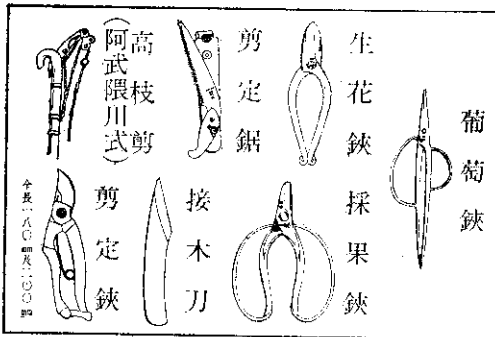 葡萄鋏
生花鋏
採果鋏
剪定鋸
接木刀
高枝剪
(阿武隈川式)
剪定鋏
全長一八〇㎜及二〇〇㎜